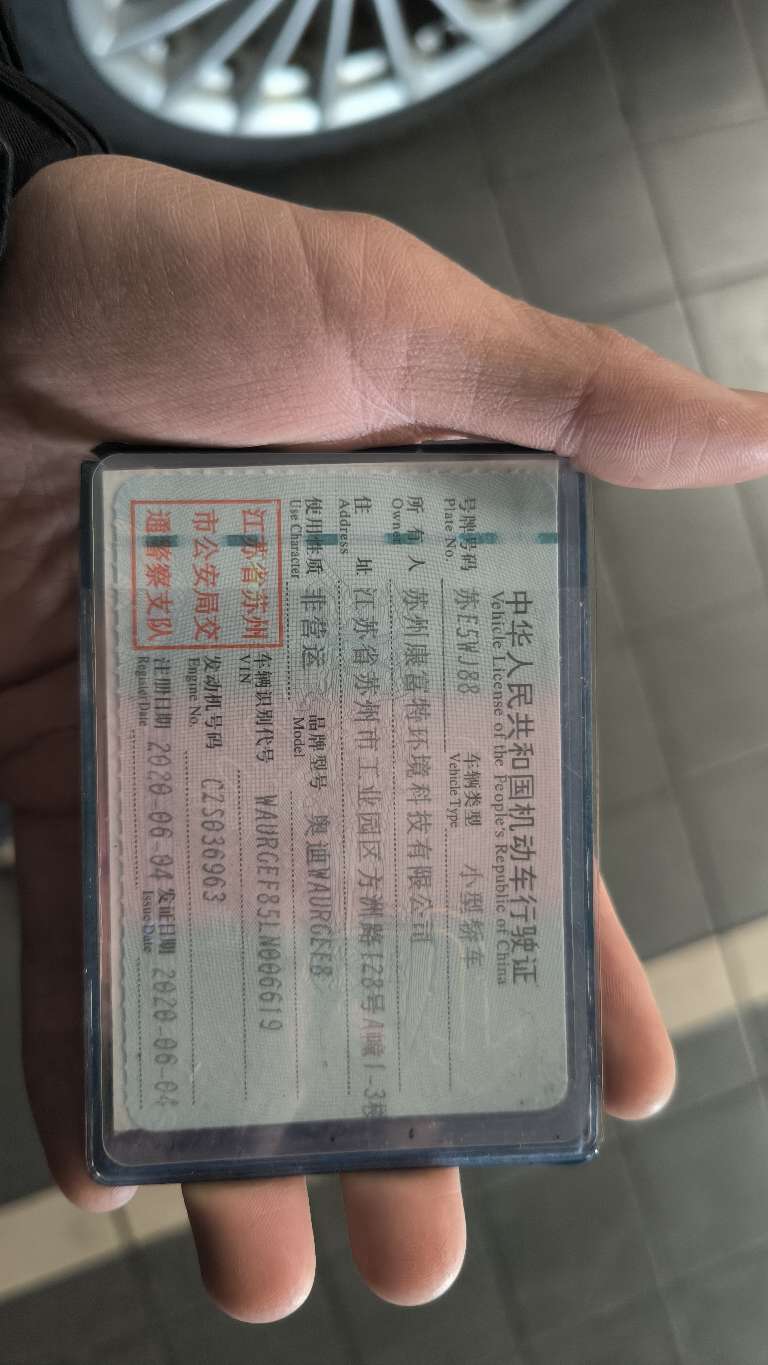 中华人民共和国机动车行驶证
Vehicle License of the People's Republic of China
号牌号码 苏E5WJ88 车辆类型 小型轿车
Plate No. Vehicle Type
所有人 苏州康富特环境科技有限公司
Owner
住址 江苏省苏州市工业园区方洲路128号A幢1-3楼
Address
使用性质 非营运 品牌型号 奥迪WAURGEF8
Use Character Model
江苏省苏州
市公安局交
通警察支队
车辆识别代号 WAURGEF85LN006619
VIN
发动机号码 CZS036963
Engine No.
注册日期 2020-06-04 发证日期 2020-06-04
Register Date Issue Date